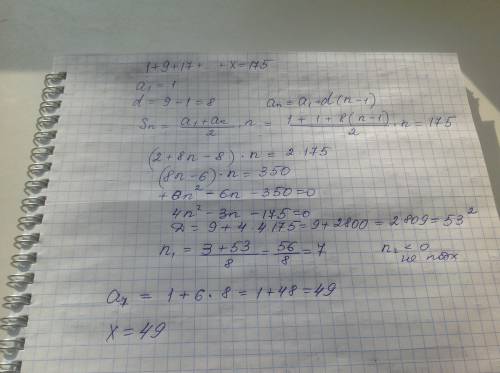 1+9+17+...+x=175
a₁=1
d=9-1=8  aₙ=a₁+d(n-1)
Sₙ = (a₁+aₙ)/2 · n = (1+1+8(n-1))/2 · n = 175
(2+8n-8)·n=2·175
(8n-6)·n=350
+8n²-6n-350=0
4n²-3n-175=0
D=9+4·4·175=9+2800=2809=53²
n₁ = (3+53)/8 = 56/8 = 7  n₂<0
a₇ = 1+6·8=1+48=49
x=49